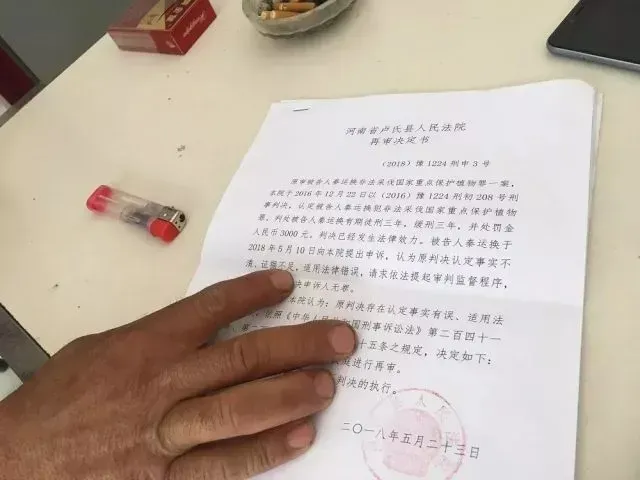 河南省卢氏县人民法院
再审决定书
（2018）豫1224刑申3号
原审被告人秦运换非法采伐国家重点保护植物罪一案，
本院于2016年12月22日以（2016）豫1224刑初208号刑
事判决，认定被告人秦运换犯非法采伐国家重点保护植物
罪，判处被告人秦运换有期徒刑三年，缓刑三年，并处罚金
人民币3000元。判决已经发生法律效力。被告人秦运换于
2018年5月10日向本院提出申诉，认为原判决认定事实不
清、证据不足，适用法律错误，请求依法提起审判监督程序，
决申诉人无罪。
本院认为：原判决存在认定事实有误、适用法
依照《中华人民共和国刑事诉讼法》第二百四十一
第二 十五条之规定，决定如下：
庭进行再审。
判决的执行。
二〇一八年五月二十三日